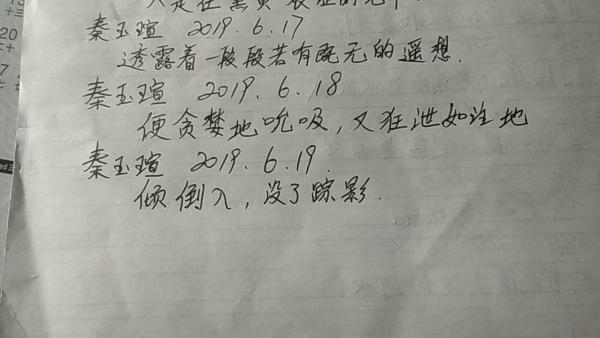 秦玉瑄 2019.6.17
透露着一段段若有既无的遥想.
秦玉瑄 2019.6.18
便贪婪地吮吸,又狂泄如注地
秦玉瑄 2019.6.19
倾倒入,没了踪影.